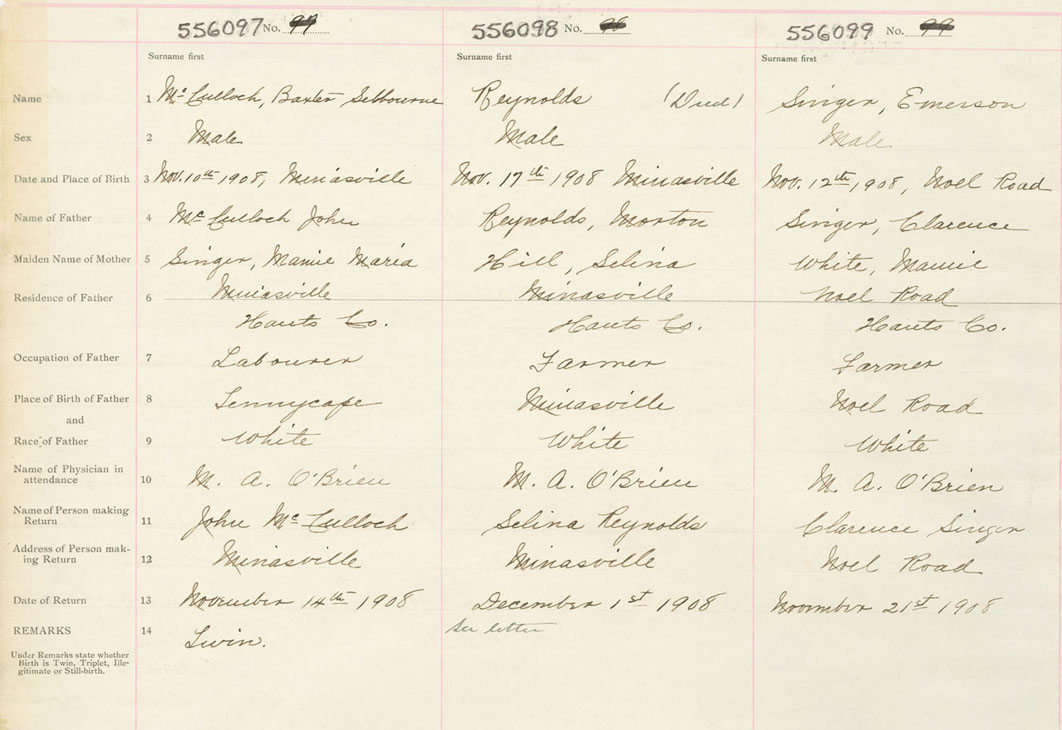 556097 No. 99 556098 No. 556099 No. 99
Surname first Surname first Surname first
Name 1 McCulloch, Baxter Selbourne Reynolds (Died) Singer, Emerson
Sex 2 Male Male Male
Date and Place of Birth 3 Nov. 10th 1908, Minasville Nov. 17th 1908 Minasville Nov. 12th, 1908, Noel Road
Name of Father 4 McCulloch John Reynolds, Morton Singer, Clarence
Maiden Name of Mother 5 Singer, Mamie Maria Hill, Selina White, Mamie
Residence of Father 6 Minasville Minasville Noel Road
Hants Co. Hants Co. Hants Co.
Occupation of Father 7 Labourer Farmer Farmer
Place of Birth of Father 8 Tennycape Minasville Noel Road
and
Race of Father 9 White White White
Name of Physician in
attendance 10 M. A. O'Brien M. A. O'Brien M. A. O'Brien
Name of Person making
Return 11 John McCulloch Selina Reynolds Clarence Singer
Address of Person mak-
ing Return 12 Minasville Minasville Noel Road
Date of Return 13 November 14th 1908 December 1st 1908 November 21st 1908
REMARKS 14 Twin. See letter
Under Remarks state whether
Birth is Twin, Triplet, Ille-
gitimate or Still-birth.